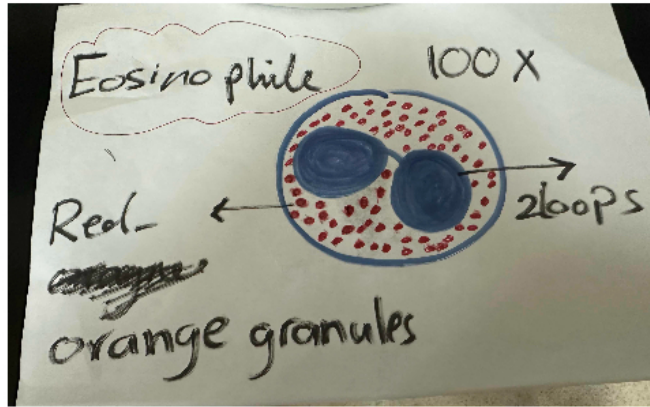 Eosinophile
100 X
2loops
Red-
orange granules